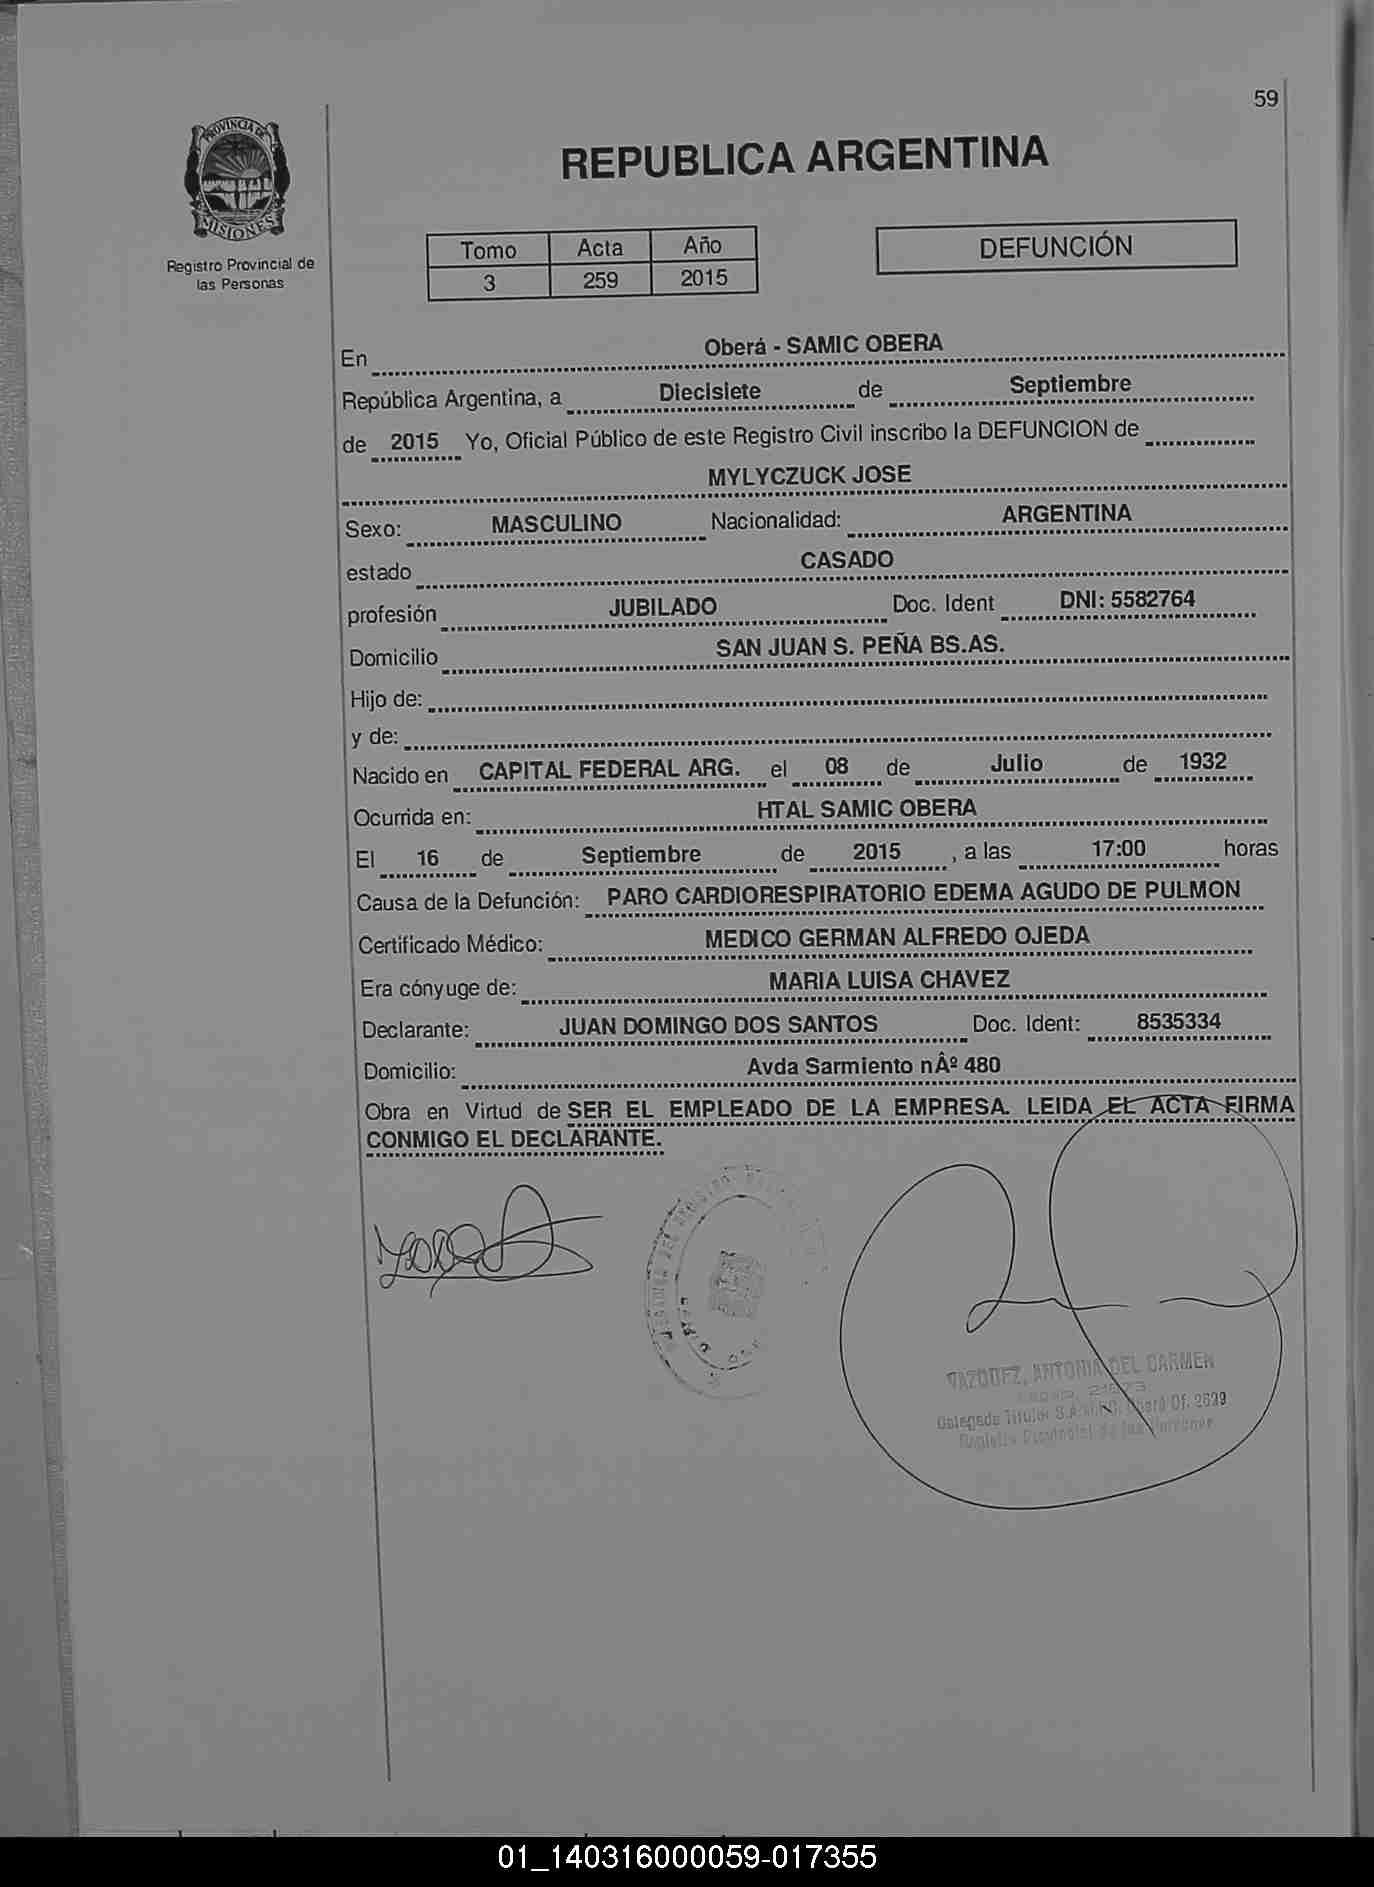 59
PROVINCIA DE
MISIONES
Registro Provincial de
las Personas
REPUBLICA ARGENTINA
Tomo Acta Año
3 259 2015
DEFUNCIÓN
En Oberá - SAMIC OBERA
República Argentina, a Diecisiete de Septiembre
de 2015 Yo, Oficial Público de este Registro Civil inscribo la DEFUNCION de
MYLYCZUCK JOSE
Sexo: MASCULINO Nacionalidad: ARGENTINA
estado CASADO
profesión JUBILADO Doc. Ident DNI: 5582764
Domicilio SAN JUAN S. PEÑA BS.AS.
Hijo de:
y de:
Nacido en CAPITAL FEDERAL ARG. el 08 de Julio de 1932
Ocurrida en: HTAL SAMIC OBERA
El 16 de Septiembre de 2015 , a las 17:00 horas
Causa de la Defunción: PARO CARDIORESPIRATORIO EDEMA AGUDO DE PULMON
Certificado Médico: MEDICO GERMAN ALFREDO OJEDA
Era cónyuge de: MARIA LUISA CHAVEZ
Declarante: JUAN DOMINGO DOS SANTOS Doc. Ident: 8535334
Domicilio: Avda Sarmiento nÂº 480
Obra en Virtud de SER EL EMPLEADO DE LA EMPRESA. LEIDA EL ACTA FIRMA
CONMIGO EL DECLARANTE.
VAZQUEZ, ANTONIA DEL CARMEN
Delegada Titular
Registro Provincial de las Personas
01_140316000059-017355